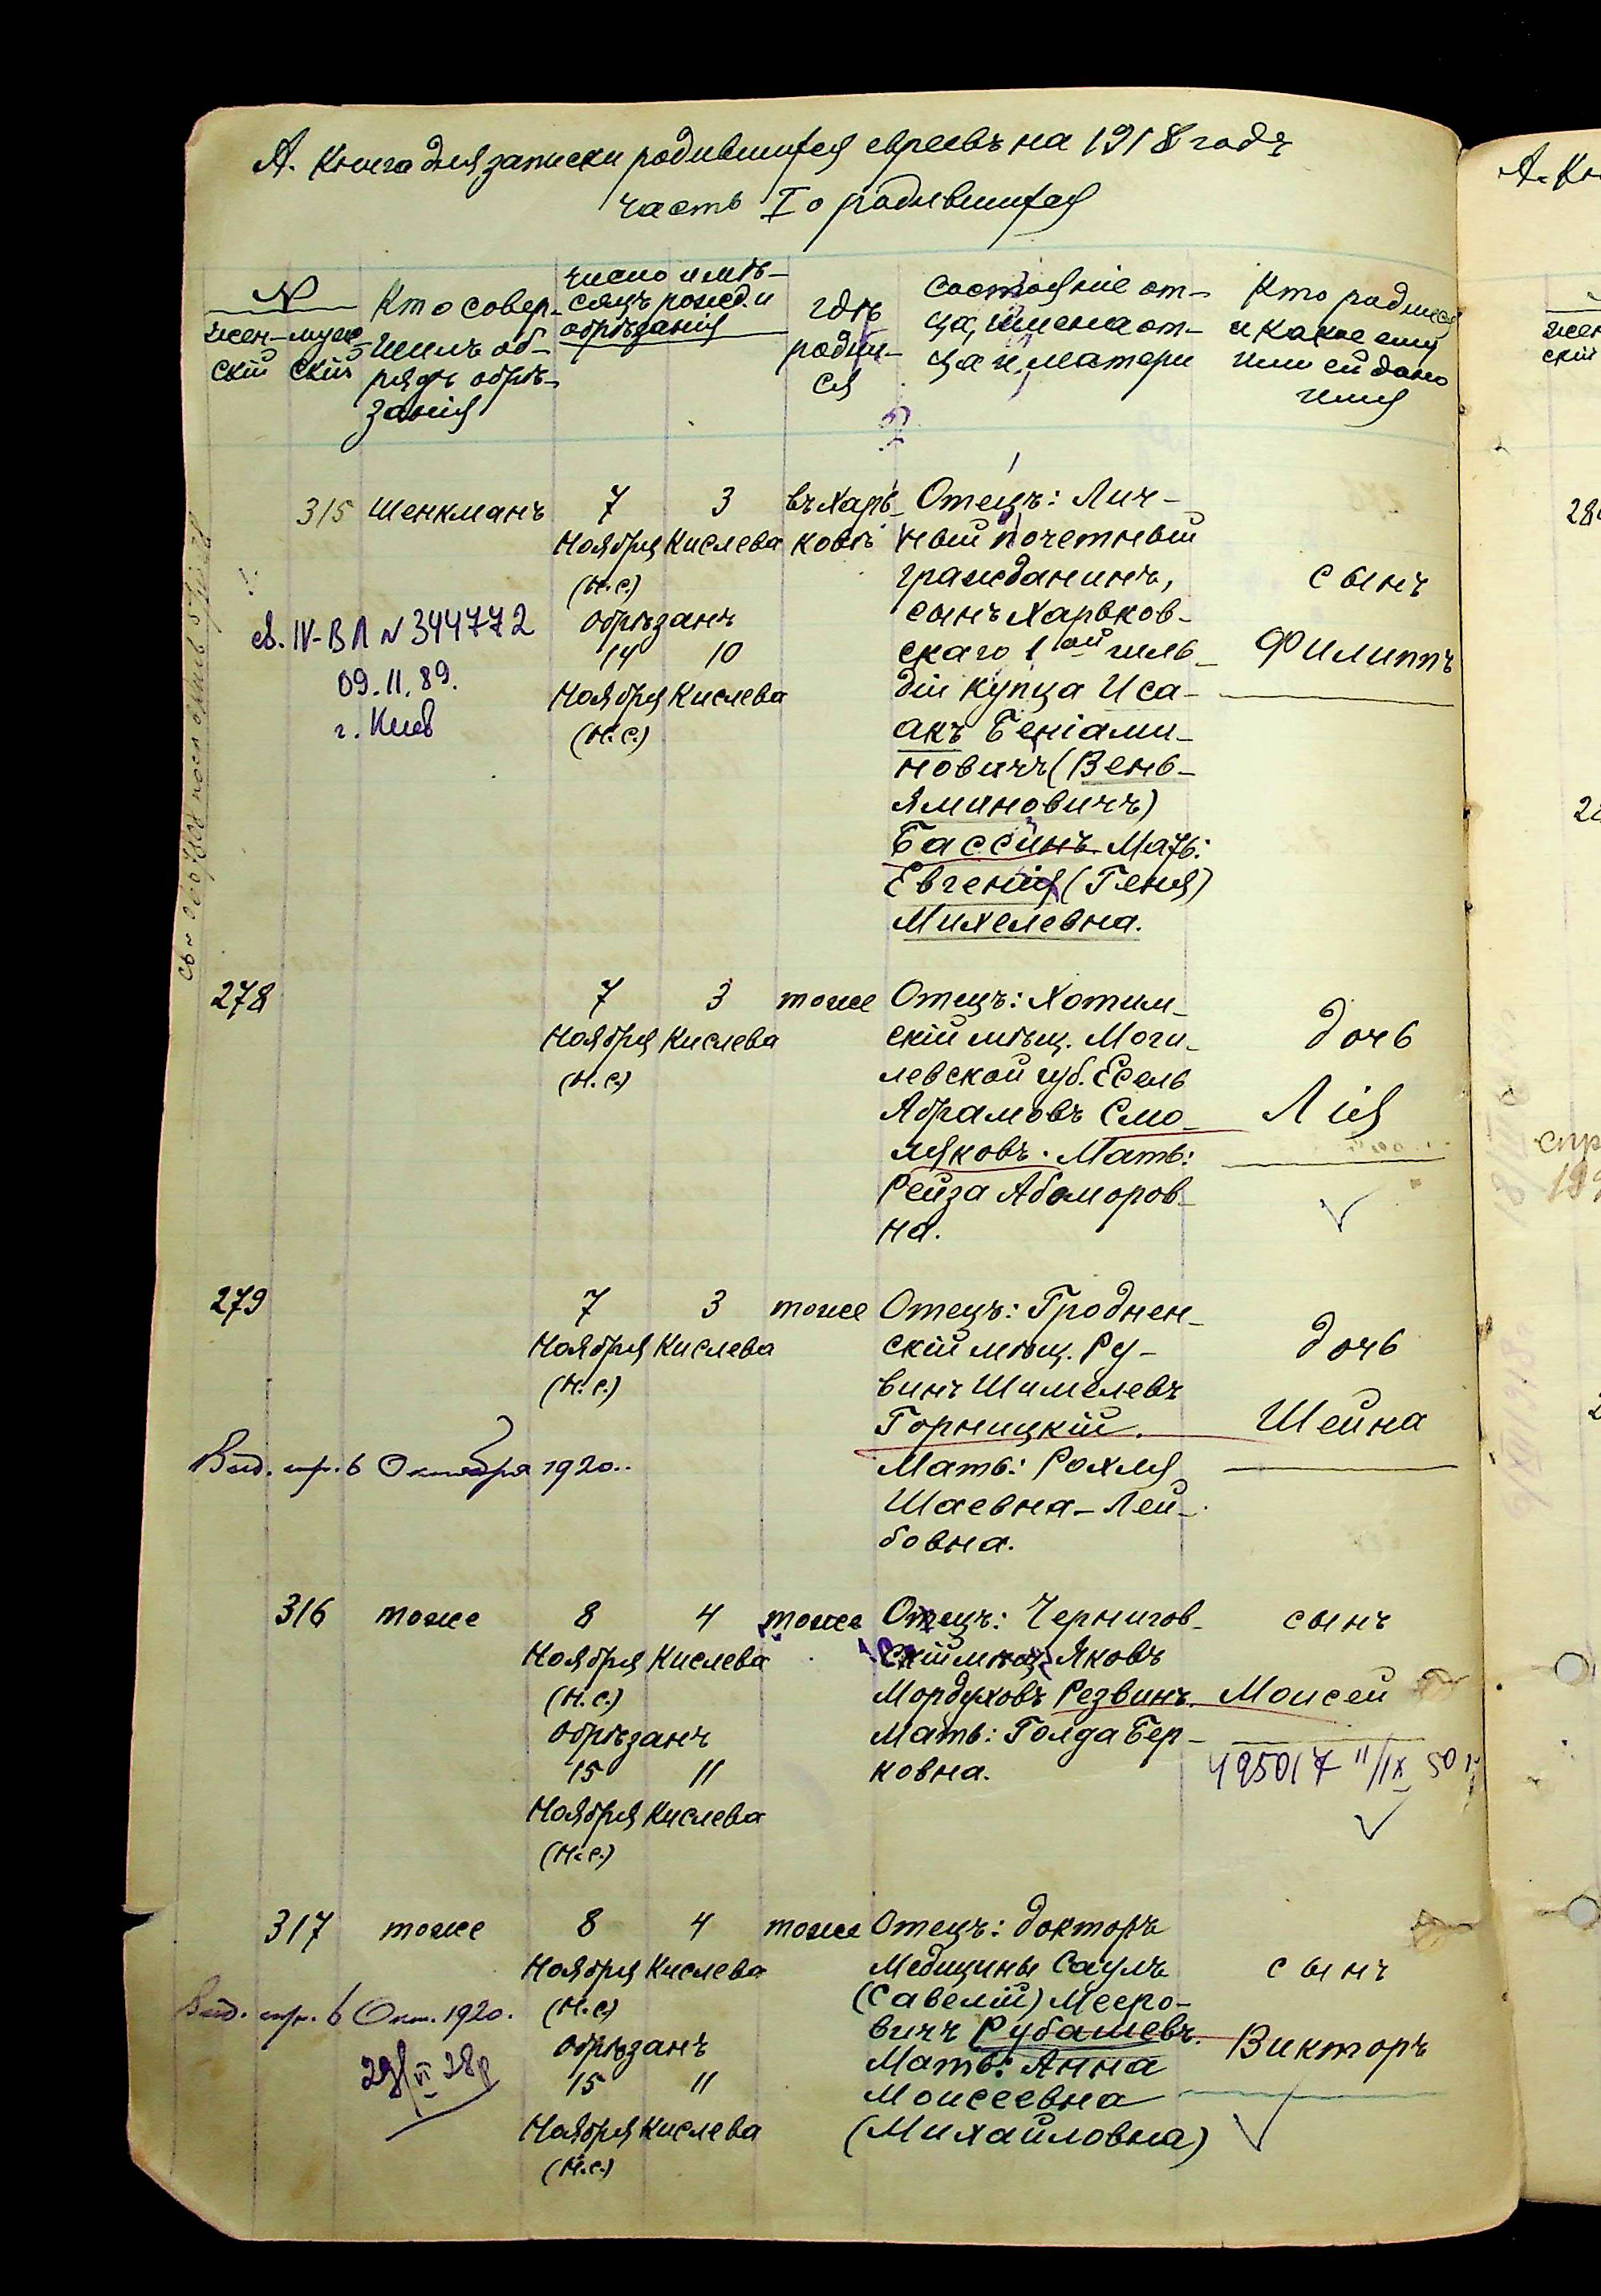 А. Книга для записки родившихся евреевъ на 1918 годъ
часть I о родившихся
№
жен-
скій
муж-
скій
Кто совер-
шилъ об-
рядъ обрѣ-
занія
число и мѣ-
сяцъ рожд. и
обрѣзанія
гдѣ
родил-
ся
Состояніе от-
ца, имена от-
ца и матери
Кто родился
и какое ему
или ей дано
имя
315 Шенкманъ
7 3
Ноября Кислева
(Н.С.)
обрѣзанъ
14 10
Ноября Кислева
(Н.С.)
въ Харь-
ковѣ
Отецъ: Лич-
ный почетный
гражданинъ,
сынъ Харьков-
скаго 1ой гиль-
діи купца Иса-
акъ Беніами-
новичъ (Вень-
яминовичъ)
Бассинъ. Мать:
Евгенія (Геня)
Михелевна.
сынъ
Филиппъ
св. IV-ВЛ N 344772
09.11.89.
г. Киев
278
7 3
Ноября Кислева
(Н.С.)
тоже
Отецъ: Хотим-
скій мѣщ. Моги-
левской губ. Есель
Абрамовъ Смо-
ляковъ. Мать:
Рейза Абаморов-
на.
дочь
Лія
279
7 3
Ноября Кислева
(Н.С.)
тоже
Отецъ: Гроднен-
скій мѣщ. Ру-
винъ Шимелевъ
Горницкій.
Мать: Рохля
Шаевна-Лей-
бовна.
дочь
Шейна
Выд. спр. 6 Октября 1920..
316 тоже
8 4
Ноября Кислева
(Н.С.)
обрѣзанъ
15 11
Ноября Кислева
(Н.С.)
тоже
Отецъ: Чернигов-
скій мѣщ. Яковъ
Мордуховъ Резвинъ.
Мать: Голда Бер-
ковна.
сынъ
Моисей
495017 11/IX 50 г.
317 тоже
8 4
Ноября Кислева
(Н.С.)
обрѣзанъ
15 11
Ноября Кислева
(Н.С.)
тоже
Отецъ: докторъ
Медицины Саулъ
(Савелій) Мееро-
вичъ Рубашевъ.
Мать: Анна
Моисеевна
(Михайловна)
сынъ
Викторъ
Выд. спр. 6 Окт. 1920.
29/VI 28 г